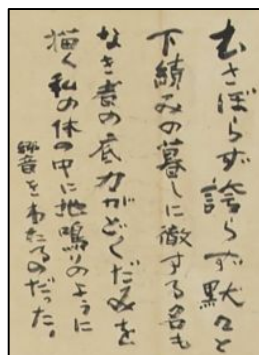 むさぼらず誇らず黙々と
下績みの暮しに徹する名も
なき者の底力がどくだみを
描く私の体の中に地鳴りのように
響音をわたるのだった。